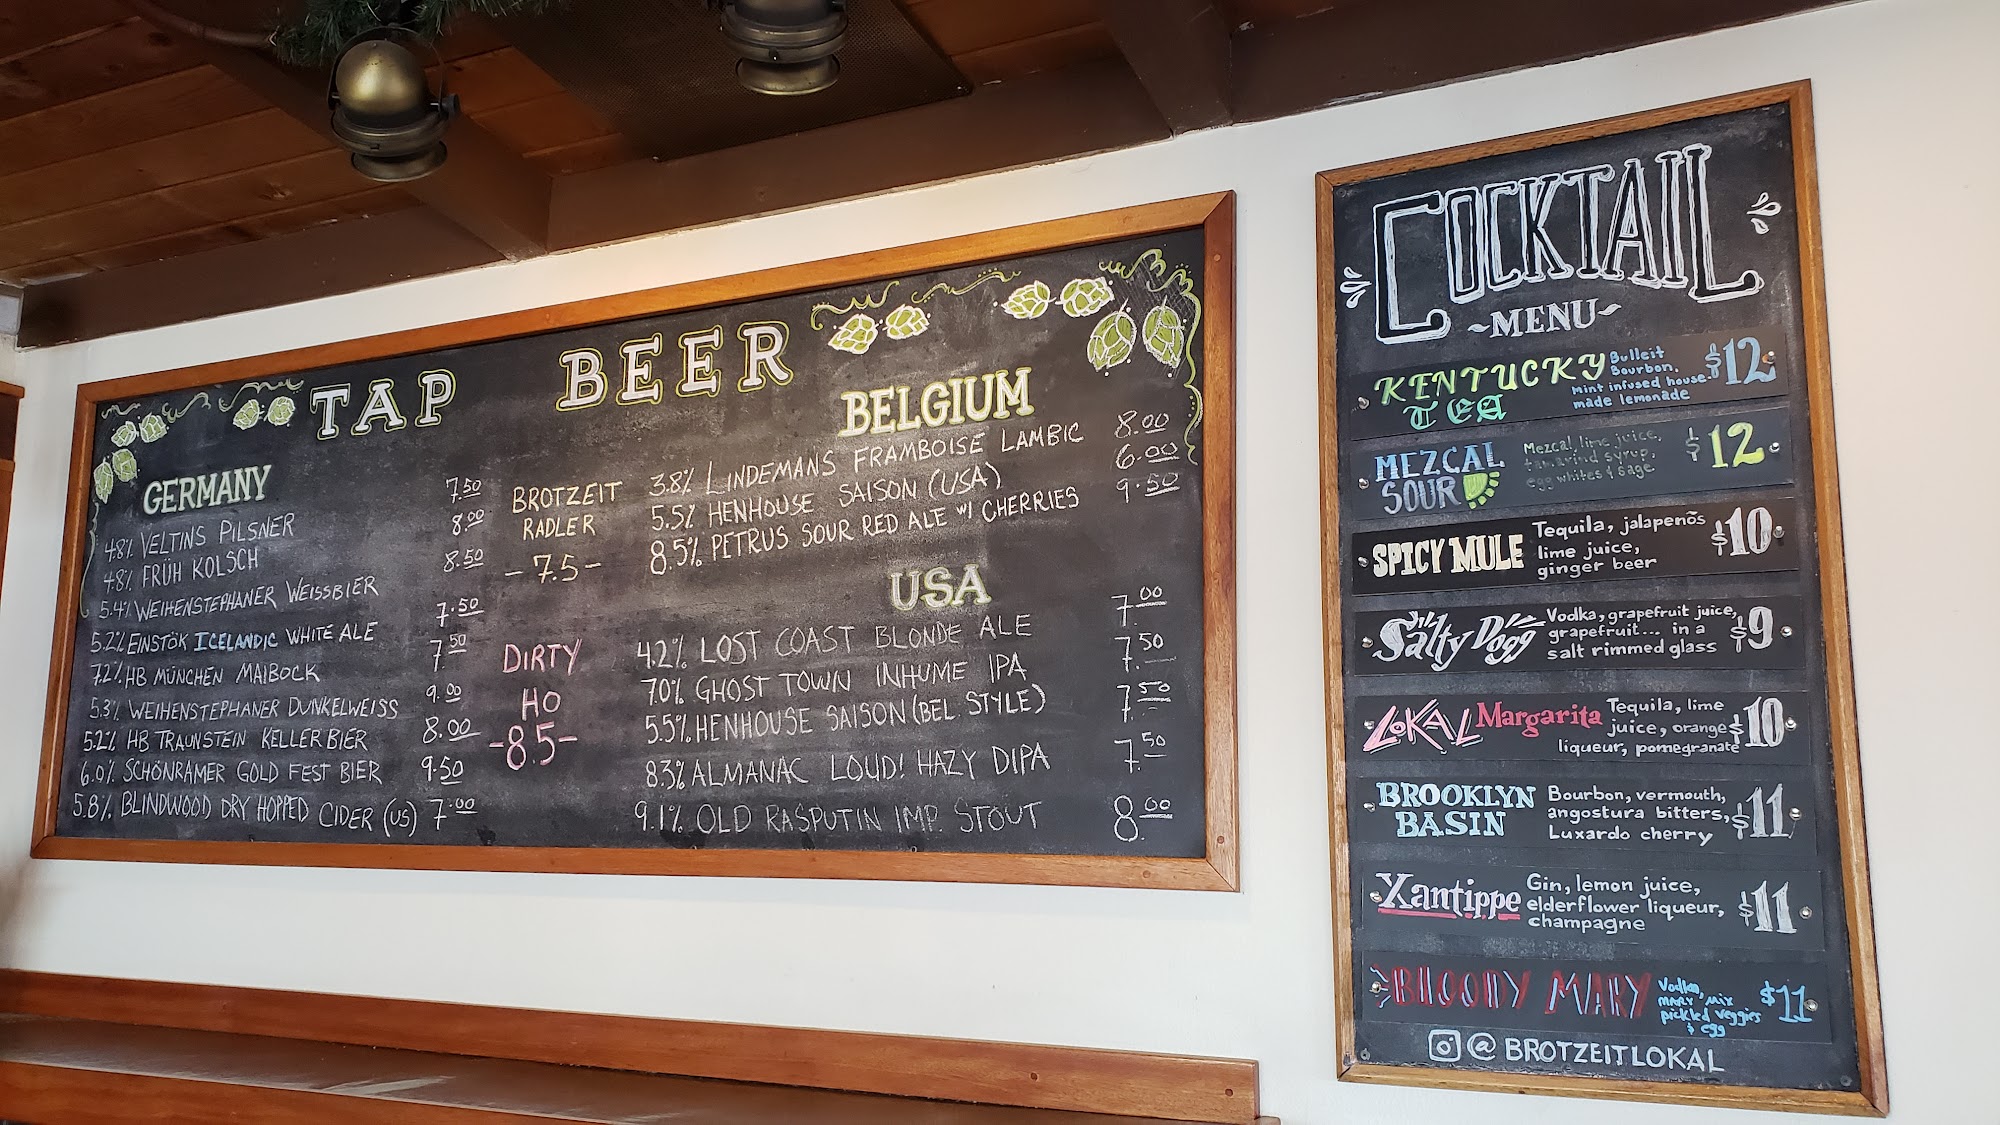 TAP BEER
GERMANY
4.8% VELTINS PILSNER 7.50
4.8% FRÜH KOLSCH 8.00
5.4% WEIHENSTEPHANER WEISSBIER 8.50
5.2% EINSTÖK ICELANDIC WHITE ALE 7.50
7.2% HB MÜNCHEN MAIBOCK 7.50
5.3% WEIHENSTEPHANER DUNKELWEISS 9.00
5.2% HB TRAUNSTEIN KELLERBIER 8.00
6.0% SCHÖNRAMER GOLD FEST BIER 9.50
5.8% BLINDWOOD DRY HOPPED CIDER (US) 7.00
BROTZEIT
RADLER
- 7.5 -
DIRTY
HO
-8.5-
BELGIUM
3.8% LINDEMANS FRAMBOISE LAMBIC 8.00
5.5% HENHOUSE SAISON (USA) 6.00
8.5% PETRUS SOUR RED ALE W/ CHERRIES 9.50
USA
4.2% LOST COAST BLONDE ALE 7.00
7.0% GHOST TOWN INHUME IPA 7.50
5.5% HENHOUSE SAISON (BEL. STYLE) 7.50
8.3% ALMANAC LOUD! HAZY DIPA 7.50
9.1% OLD RASPUTIN IMP. STOUT 8.00
COCKTAIL
~MENU~
KENTUCKY
TEA
Bulleit
Bourbon,
mint infused house-
made lemonade
$12
MEZCAL
SOUR
Mezcal, lime juice,
tamarind syrup,
egg whites & sage
$12
SPICY MULE
Tequila, jalapeños
lime juice,
ginger beer
$10
Salty Dogg
Vodka, grapefruit juice,
grapefruit... in a
salt rimmed glass
$9
LOKAL Margarita
Tequila, lime
juice, orange
liqueur, pomegranate
$10
BROOKLYN
BASIN
Bourbon, vermouth,
angostura bitters,
Luxardo cherry
$11
Xantippe
Gin, lemon juice,
elderflower liqueur,
champagne
$11
BLOODY MARY
Vodka,
MARY MIX
pickled veggies
& egg
$11
@BROTZEITLOKAL